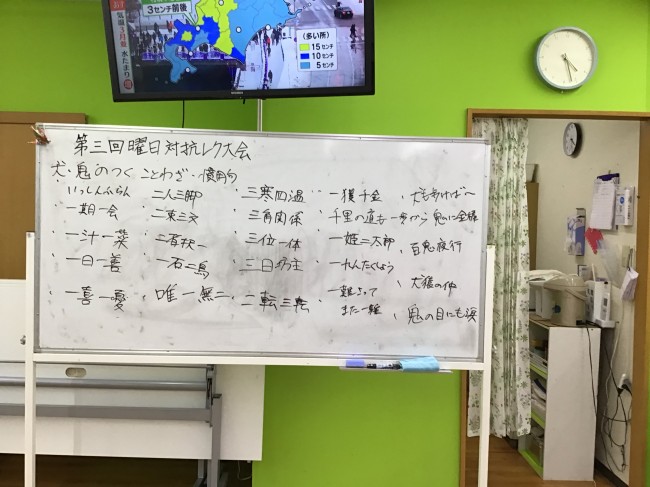 気温3月並 水たまり
3センチ前後
(多い所)
15センチ
10センチ
5センチ
第三回曜日対抗レク大会
犬・鬼のつくことわざ・慣用句
いっしんふらん 二人三脚 三寒四温 一獲千金 犬もあければ〜
一期一会 二束三文 三角関係 千里の道も一歩から 鬼に金棒
一汁一菜 三位一体 一姫二太郎 百鬼夜行
一日一善 一石二鳥 三日坊主 一れんたくしょう 犬猿の仲
一喜一憂 唯一無二 二転三転 一難さって また一難 鬼の目にも涙